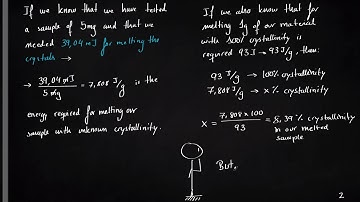 If we know that we have tested
a sample of 5mg and that we
needed 39,04 mJ for melting the
crystals →
→ 39,04 mJ / 5 mg = 7,808 J/g is the
energy required for melting our
sample with unknown crystallinity.
If we also know that for
melting 1g of our material
with 100% crystallinity is
required 93J → 93 J/g, then:
93 J/g → 100% crystallinity
7,808 J/g → x % crystallinity
x = 7,808 x 100 / 93 = 8,39 % crystallinity
in our melted
sample
But,
2